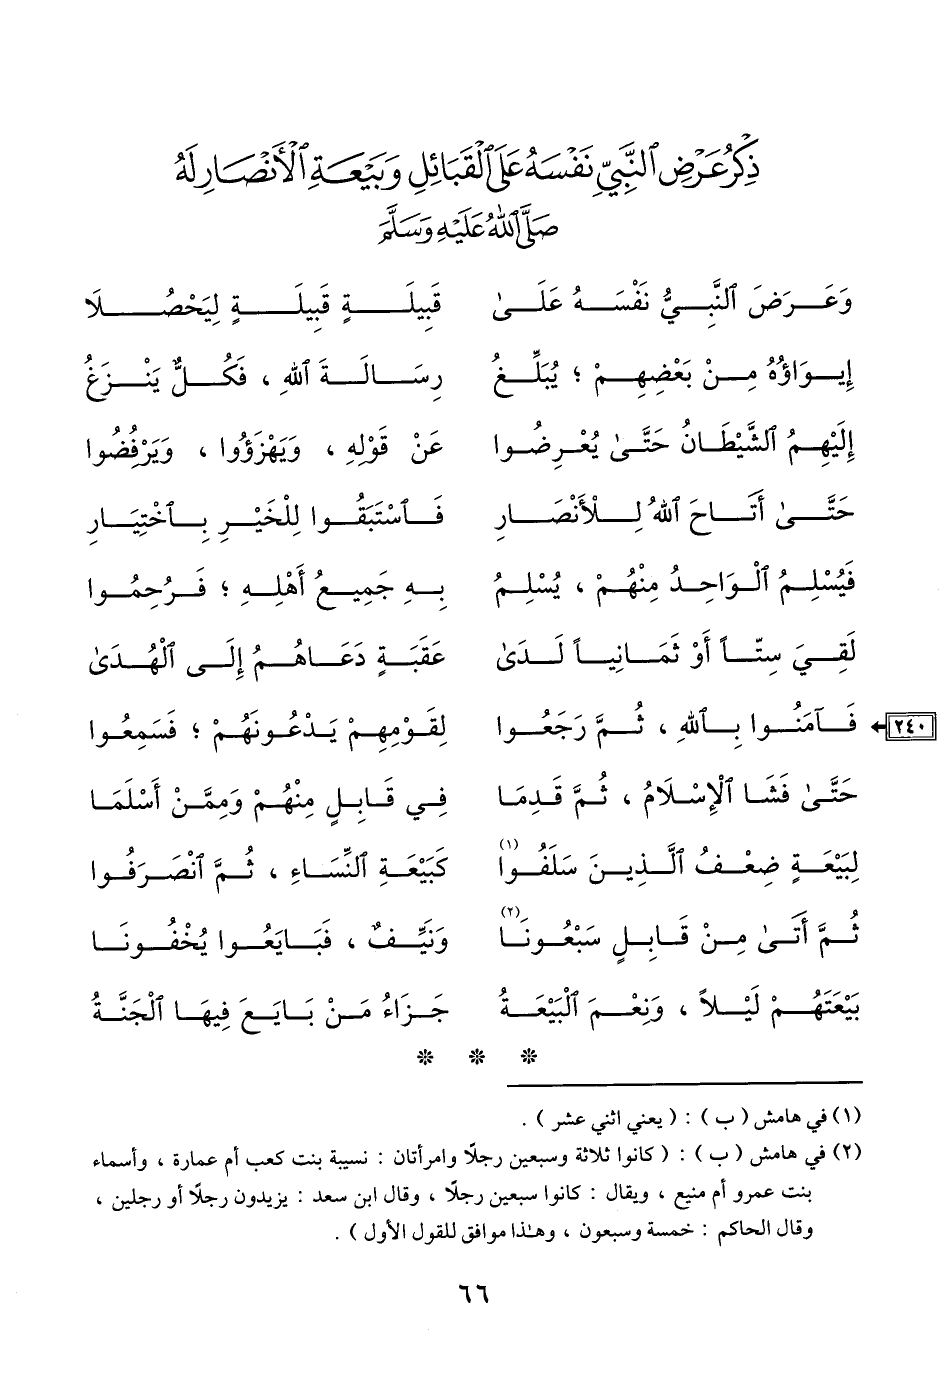 ذِكْرُ عَرْضِ ٱلنَّبِيِّ نَفْسَهُ عَلَى ٱلْقَبَائِلِ وَبَيْعَةِ ٱلْأَنْصَارِ لَهُ
صَلَّى ٱللهُ عَلَيْهِ وَسَلَّمَ
وَعَرَضَ ٱلنَّبِيُّ نَفْسَهُ عَلَىٰ قَبِيلَةٍ قَبِيلَةٍ لِيَحْصُلَا
إِيوَاؤُهُ مِنْ بَعْضِهِمْ ؛ يُبَلِّغُ رِسَالَةَ ٱللهِ ، فَكُلٌّ يَنْزَغُ
إِلَيْهِمُ ٱلشَّيْطَانُ حَتَّىٰ يُعْرِضُوا عَنْ قَوْلِهِ ، وَيَهْزَؤُوا ، وَيَرْفُضُوا
حَتَّىٰ أَتَاحَ ٱللهُ لِلْأَنْصَارِ فَٱسْتَبَقُوا لِلْخَيْرِ بِٱخْتِيَارِ
فَيُسْلِمُ ٱلْوَاحِدُ مِنْهُمْ ، يُسْلِمُ بِهِ جَمِيعُ أَهْلِهِ ؛ فَرُحِمُوا
لَقِيَ سِتّاً أَوْ ثَمَانِياً لَدَىٰ عَقَبَةٍ دَعَاهُمُ إِلَى ٱلْهُدَىٰ
٢٤٠ فَآمَنُوا بِٱللهِ ، ثُمَّ رَجَعُوا لِقَوْمِهِمْ يَدْعُونَهُمْ ؛ فَسَمِعُوا
حَتَّىٰ فَشَا ٱلْإِسْلَامُ ، ثُمَّ قَدِمَا فِي قَابِلٍ مِنْهُمْ وَمِمَّنْ أَسْلَمَا
لِبَيْعَةٍ ضِعْفُ ٱلَّذِينَ سَلَفُوا(١) كَبَيْعَةِ ٱلنِّسَاءِ ، ثُمَّ ٱنْصَرَفُوا
ثُمَّ أَتَىٰ مِنْ قَابِلٍ سَبْعُونَا(٢) وَنَيِّفٌ ، فَبَايَعُوا يُخْفُونَا
بَيْعَتَهُمْ لَيْلاً ، وَنِعْمَ ٱلْبَيْعَةُ جَزَاءُ مَنْ بَايَعَ فِيهَا ٱلْجَنَّةُ
(١) في هامش ( ب ) : ( يعني اثني عشر ) .
(٢) في هامش ( ب ) : ( كانوا ثلاثة وسبعين رجلًا وامرأتان : نسيبة بنت كعب أم عمارة ، وأسماء
بنت عمرو أم منيع ، ويقال : كانوا سبعين رجلًا ، وقال ابن سعد : يزيدون رجلًا أو رجلين ،
وقال الحاكم : خمسة وسبعون ، وهٰذا موافق للقول الأول ) .
٦٦